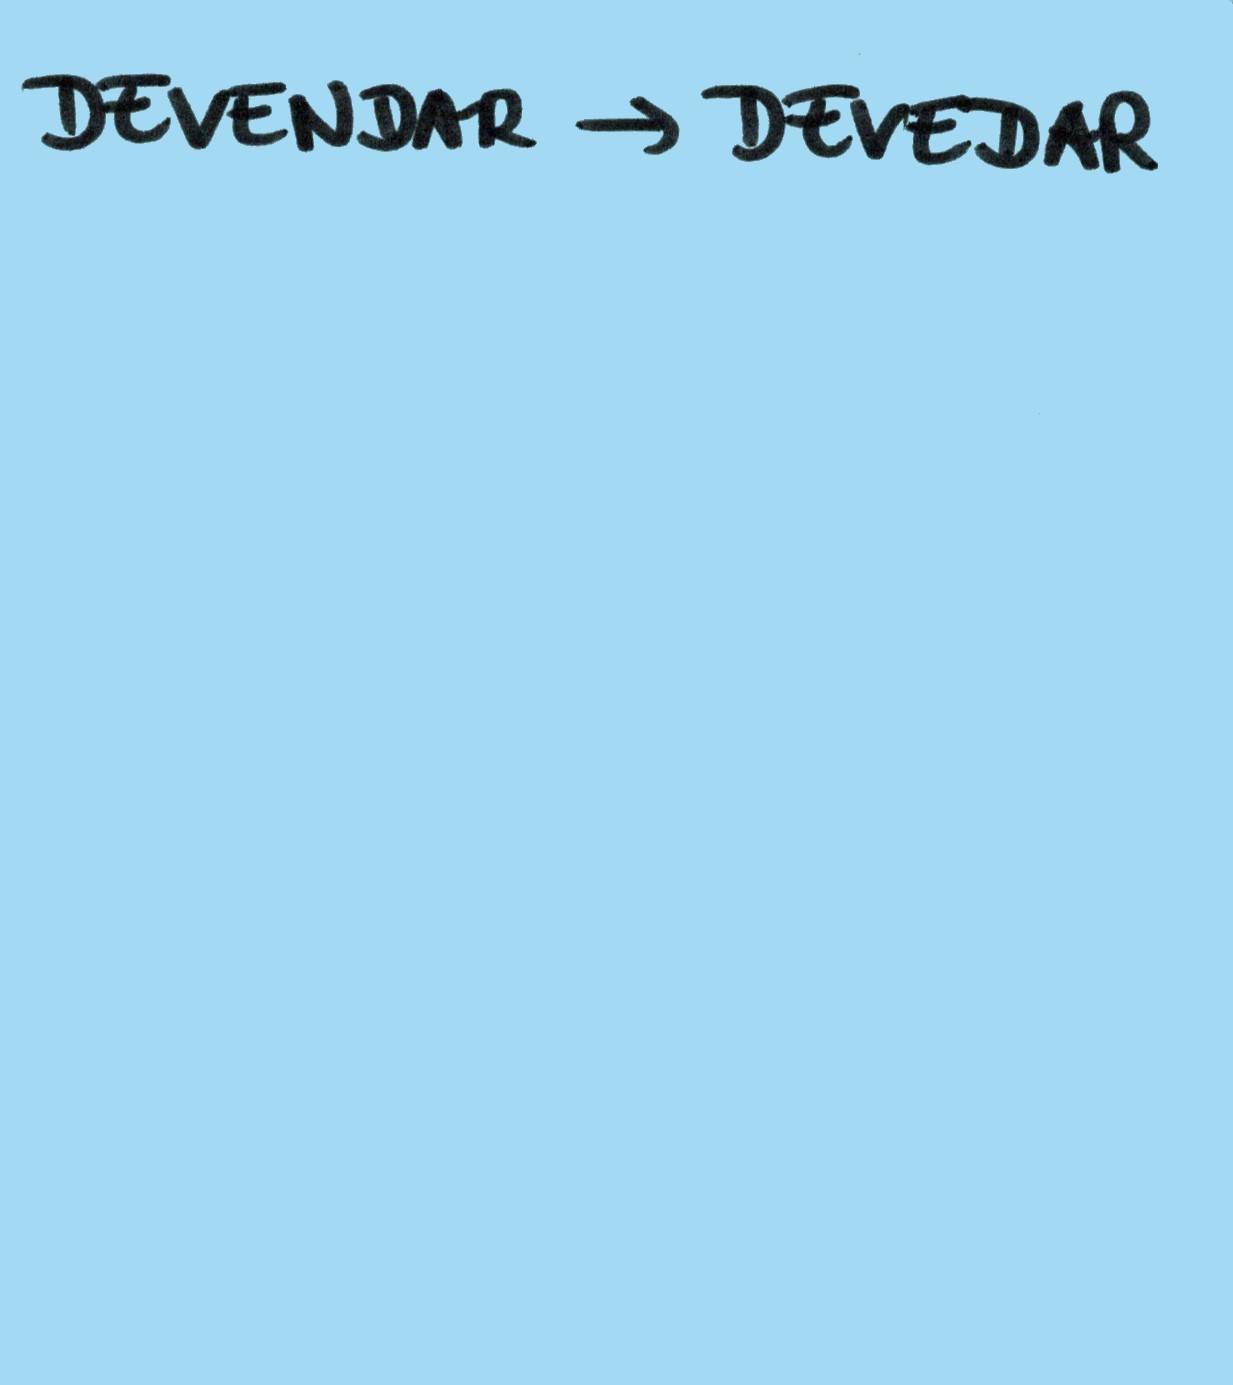 DEVENDAR → DEVEDAR